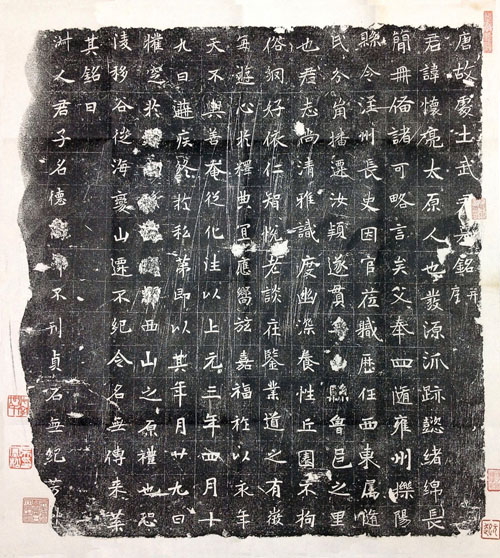 唐故處士武君墓銘并序
君諱懷亮太原人也發源派跡懿緒綿長
簡冊俻諸可略言矣父奉四隨雍州櫟陽
縣令洋州長史因官莅職歷任西東属隨
氏分崩播遷汝潁遂貫縣魯邑之里
也君志尚清雅識度幽深養性丘園不拘
俗網好依仁智悅老談莊鑒業道之有徵
每遊心於釋典冝應嚮茲嘉福於以永年
天不與善奄從化往以上元三年四月十
九日遘疾終於私第即以其年月廿九日
權窆於西山之原禮也恐
淩移谷徙海變山遷不紀令名無傳来葉
其銘曰
淑人君子名德不刊貞石無紀芳